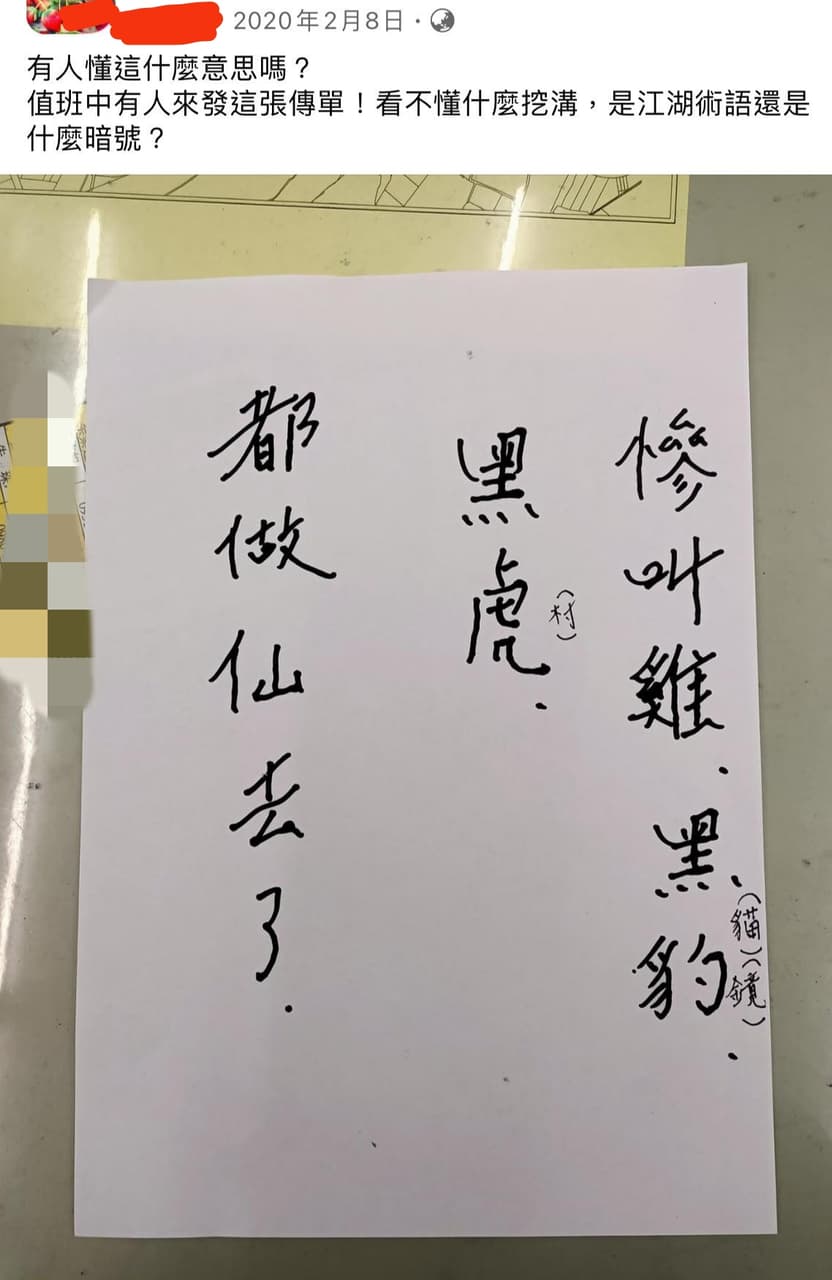 2020年2月8日
有人懂這什麼意思嗎？
值班中有人來發這張傳單！看不懂什麼挖溝，是江湖術語還是
什麼暗號？
慘叫雞、黑豹（貓）（鏡）、
黑虎（村）、
都做仙去了.